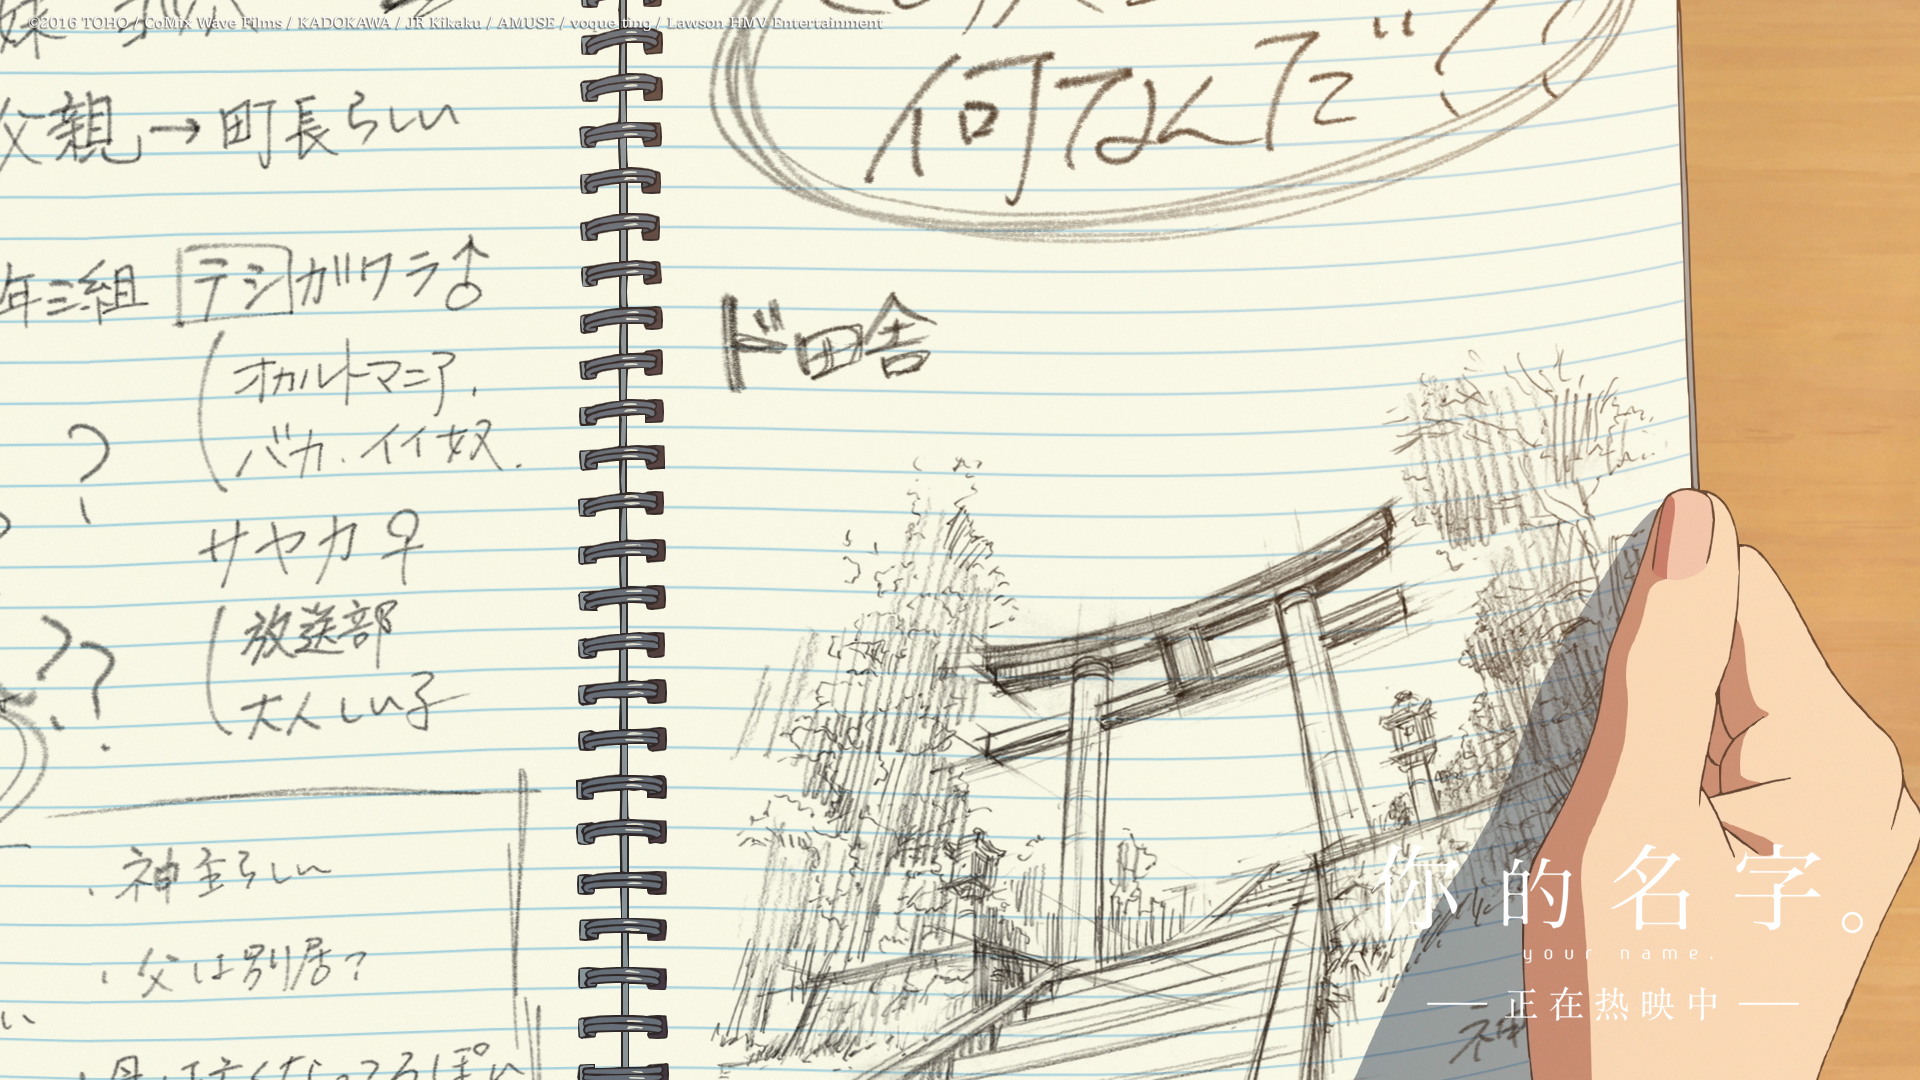 ©2016 TOHO / CoMix Wave Films / KADOKAWA / JR Kikaku / AMUSE / voque ting / Lawson HMV Entertainment
父親→町長らしい
年三組 テシガワラ♂
オカルトマニア.
バカ.イイ奴.
?
サヤカ♀
放送部
大人しい子
??
・神主らしい
・父は別居?
何なんだ
ド田舎
你的名字。
your name.
正在热映中